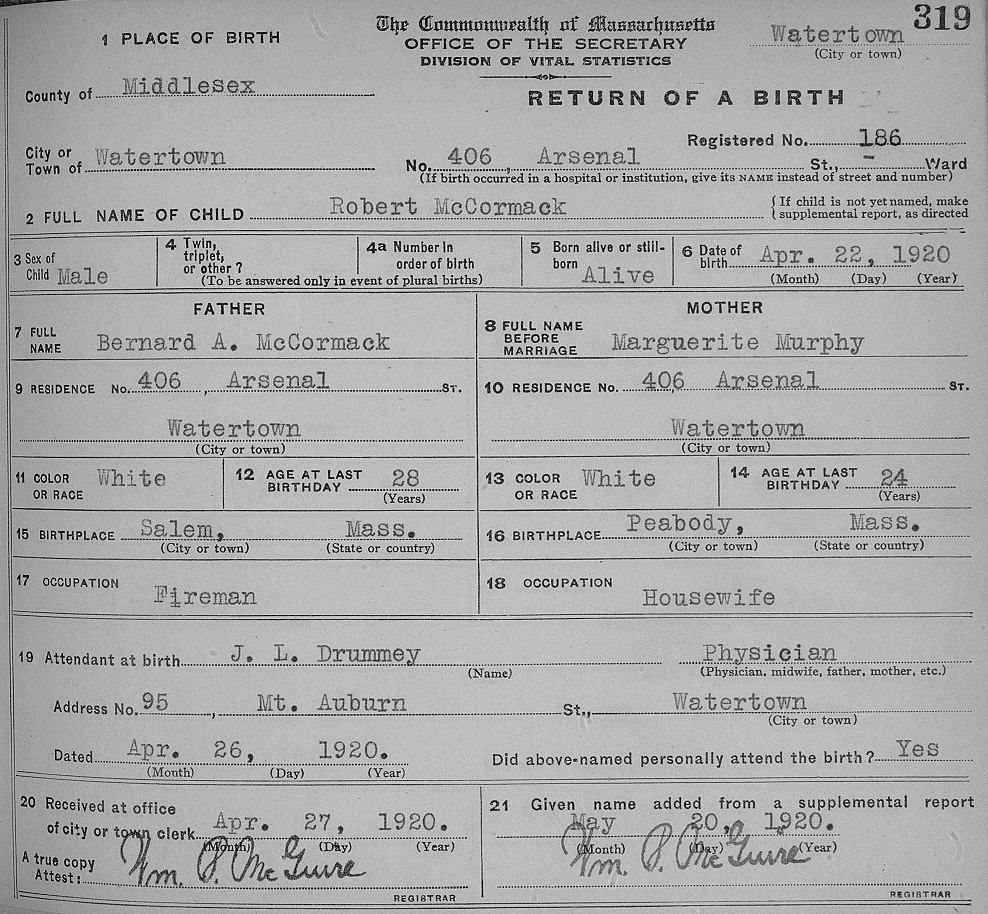 The Commonwealth of Massachusetts
OFFICE OF THE SECRETARY
DIVISION OF VITAL STATISTICS
319
Watertown
(City or town)
1 PLACE OF BIRTH
County of Middlesex
RETURN OF A BIRTH
Registered No. 186
City or Town of Watertown No. 406, Arsenal St., - Ward
(If birth occurred in a hospital or institution, give its NAME instead of street and number)
2 FULL NAME OF CHILD Robert McCormack { If child is not yet named, make supplemental report, as directed
3 Sex of Child Male
4 Twin, triplet, or other?
4a Number in order of birth
(To be answered only in event of plural births)
5 Born alive or still-born Alive
6 Date of birth Apr. 22, 1920
(Month) (Day) (Year)
FATHER
MOTHER
7 FULL NAME Bernard A. McCormack
8 FULL NAME BEFORE MARRIAGE Marguerite Murphy
9 RESIDENCE No. 406, Arsenal ST.
10 RESIDENCE No. 406 Arsenal ST.
Watertown
(City or town)
Watertown
(City or town)
11 COLOR OR RACE White
12 AGE AT LAST BIRTHDAY 28
(Years)
13 COLOR OR RACE White
14 AGE AT LAST BIRTHDAY 24
(Years)
15 BIRTHPLACE Salem, Mass.
(City or town) (State or country)
16 BIRTHPLACE Peabody, Mass.
(City or town) (State or country)
17 OCCUPATION
Fireman
18 OCCUPATION
Housewife
19 Attendant at birth J. L. Drummey Physician
(Name) (Physician, midwife, father, mother, etc.)
Address No. 95, Mt. Auburn St., Watertown
(City or town)
Dated Apr. 26, 1920.
(Month) (Day) (Year)
Did above-named personally attend the birth? Yes
20 Received at office
of city or town clerk Apr. 27, 1920.
(Month) (Day) (Year)
A true copy
Attest: Wm. P. McGuire
REGISTRAR
21 Given name added from a supplemental report
May 20, 1920.
(Month) (Day) (Year)
Wm. P. McGuire
REGISTRAR